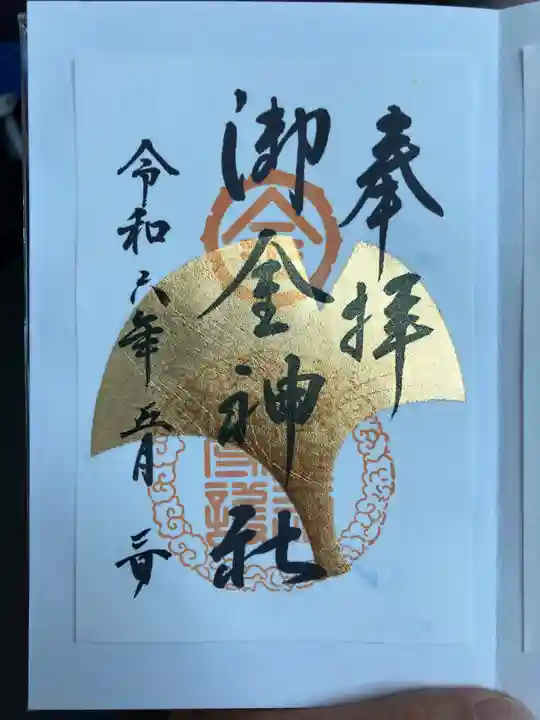 奉拝
御金神社
令和六年五月三日